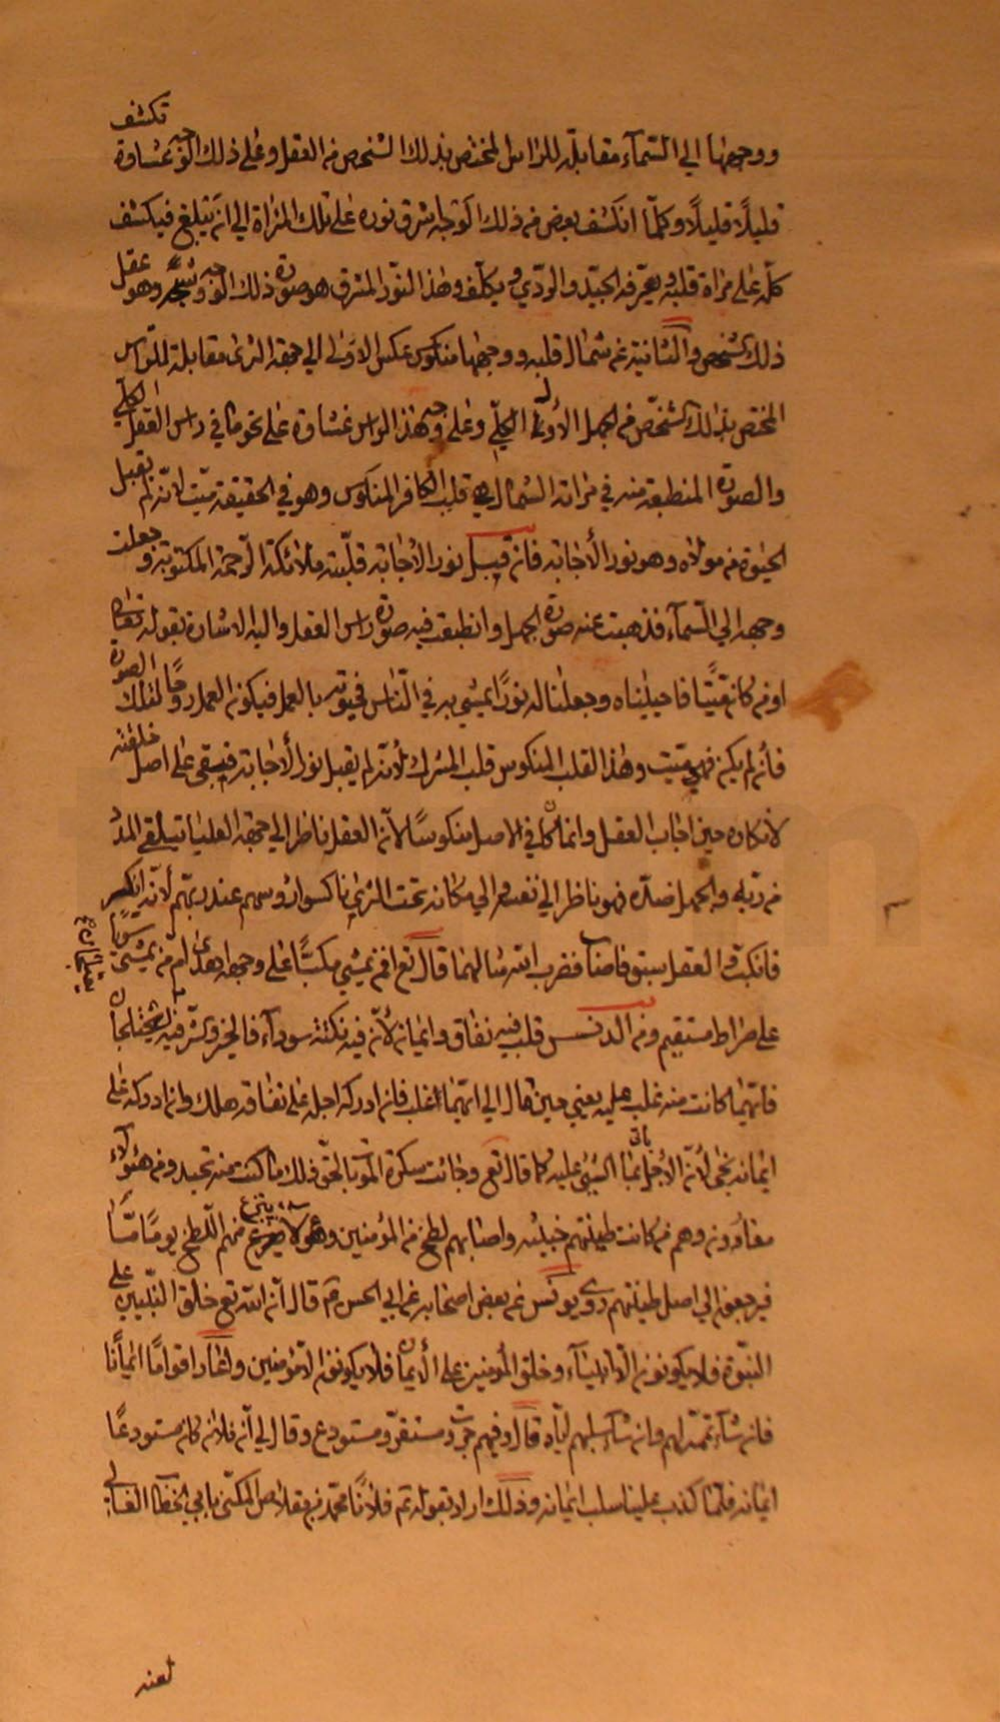 ووجهها الي السّمآء مقابلة للراس المختص بذلك الشخص من العقل وعلي ذلك الوجه غشاوة تكشف
قليلًا قليلًا وكلّما انكشف بعض من ذلك الوجه اشرق نوره علي تلك المراة الي ان يبلغ فيكشف
كلّه علي مراة قلبه ويعرف الجيّد والردّي ويكلّف وهذا النّور المشرق هو صورة ذلك الوجه وهو عقل
ذلك الشخص والثانية عن شمال قلبه ووجهها منكوس عكس الاولي الي جهة الثري مقابلة للراس
المختص بذلك الشخص من الجهل الاولي الكلّي وعلي وجه هذا الراس غشاوة علي نحو ما في راس العقل الكلّي
والصورة المنطبعة منه في مراته الشمال هي قلب الكافر المنكوس وهو في الحقيقة ميّت لانّه لم يقبل
الحيوة من مولاه وهو نور الأجابة فان قبل نور الأجابة قلّبته ملائكة الرّحمة المكتوبة وجعلت
وجهه الي السّمآء فذهبت عنه صورة الجهل وانطبعت فيه صورة راس العقل واليه الاشارة بقوله تعالي
اومن كان ميّتًا فاحييناه وجعلنا له نورًا يمشي به في النّاس فحيوته بالعمل فيكون العمل روحًا لتلك الصورة
فأن لم يكن فهو ميّت وهذا القلب المنكوس قلب المشرك لأنّه لم يقبل نور الأجابة فبقي علي اصل خلقته
لانكاره حين اجاب العقل وانما كان في الاصل منكوسًا لانّ العقل ناظر الي جهة العليا يتلقي المدد
من ربّه والجهل ضدّه فهو ناظر الي نفسه والي مكانه تحت الثري ناكسوا رؤسهم عند ربّهم لأنّه انكسر
فانكبّ والعقل سبق فاصاب فضرب الله مثالهما قال تع افمن يمشي مكبًّا علي وجهه اهدي ام من يمشي سويًا
علي صراط مستقيم ومن الدنس قلب فيه نفاق وايمان لأنّ فيه نكتة سودآء فالخير والشر فيه يختلجان
فايّهما كانت منه غلب عليه يعني حين قال الي ايّهما غلب فان ادركه اجله علي نفاقه هلك وان ادركه علي
ايمانه نجي لأنّ الأجل ياتي بما السّيئي عليه كما قال تع وجائت سكرة الموت بالحقّ ذلك ما كنت منه تحيد ومن هئولآء
معادون وهم من كانت طينتهم خبيثة واصابهم لطخ من المؤمنين وهؤلآ ينزع منهم اللّطخ يومًا مّا
فيرجعون الي اصل طينتهم روي يونس عن بعض اصحابه عن ابي الحسن ع قال انّ الله تع خلق النّبيين علي
النبّوة فلا يكونون الّا انبيآء وخلق المؤمنين علي الأيمان فلا يكونون الّا مؤمنين واعار اقوامًا ايمانًا
فان شآء تمّه لهم وان شآء سلبهم ايّاه قال وفيهم جرت مستقرّ ومستودع وقال لي انّ فلانًا كان مستودعًا
ايمانه فلمّا كذب علينا سلب ايمانه وذلك اراد بقوله تم فلانًا محمّد بن مقلاص المكنّي بابي الخطّاب الغالي
لعنه